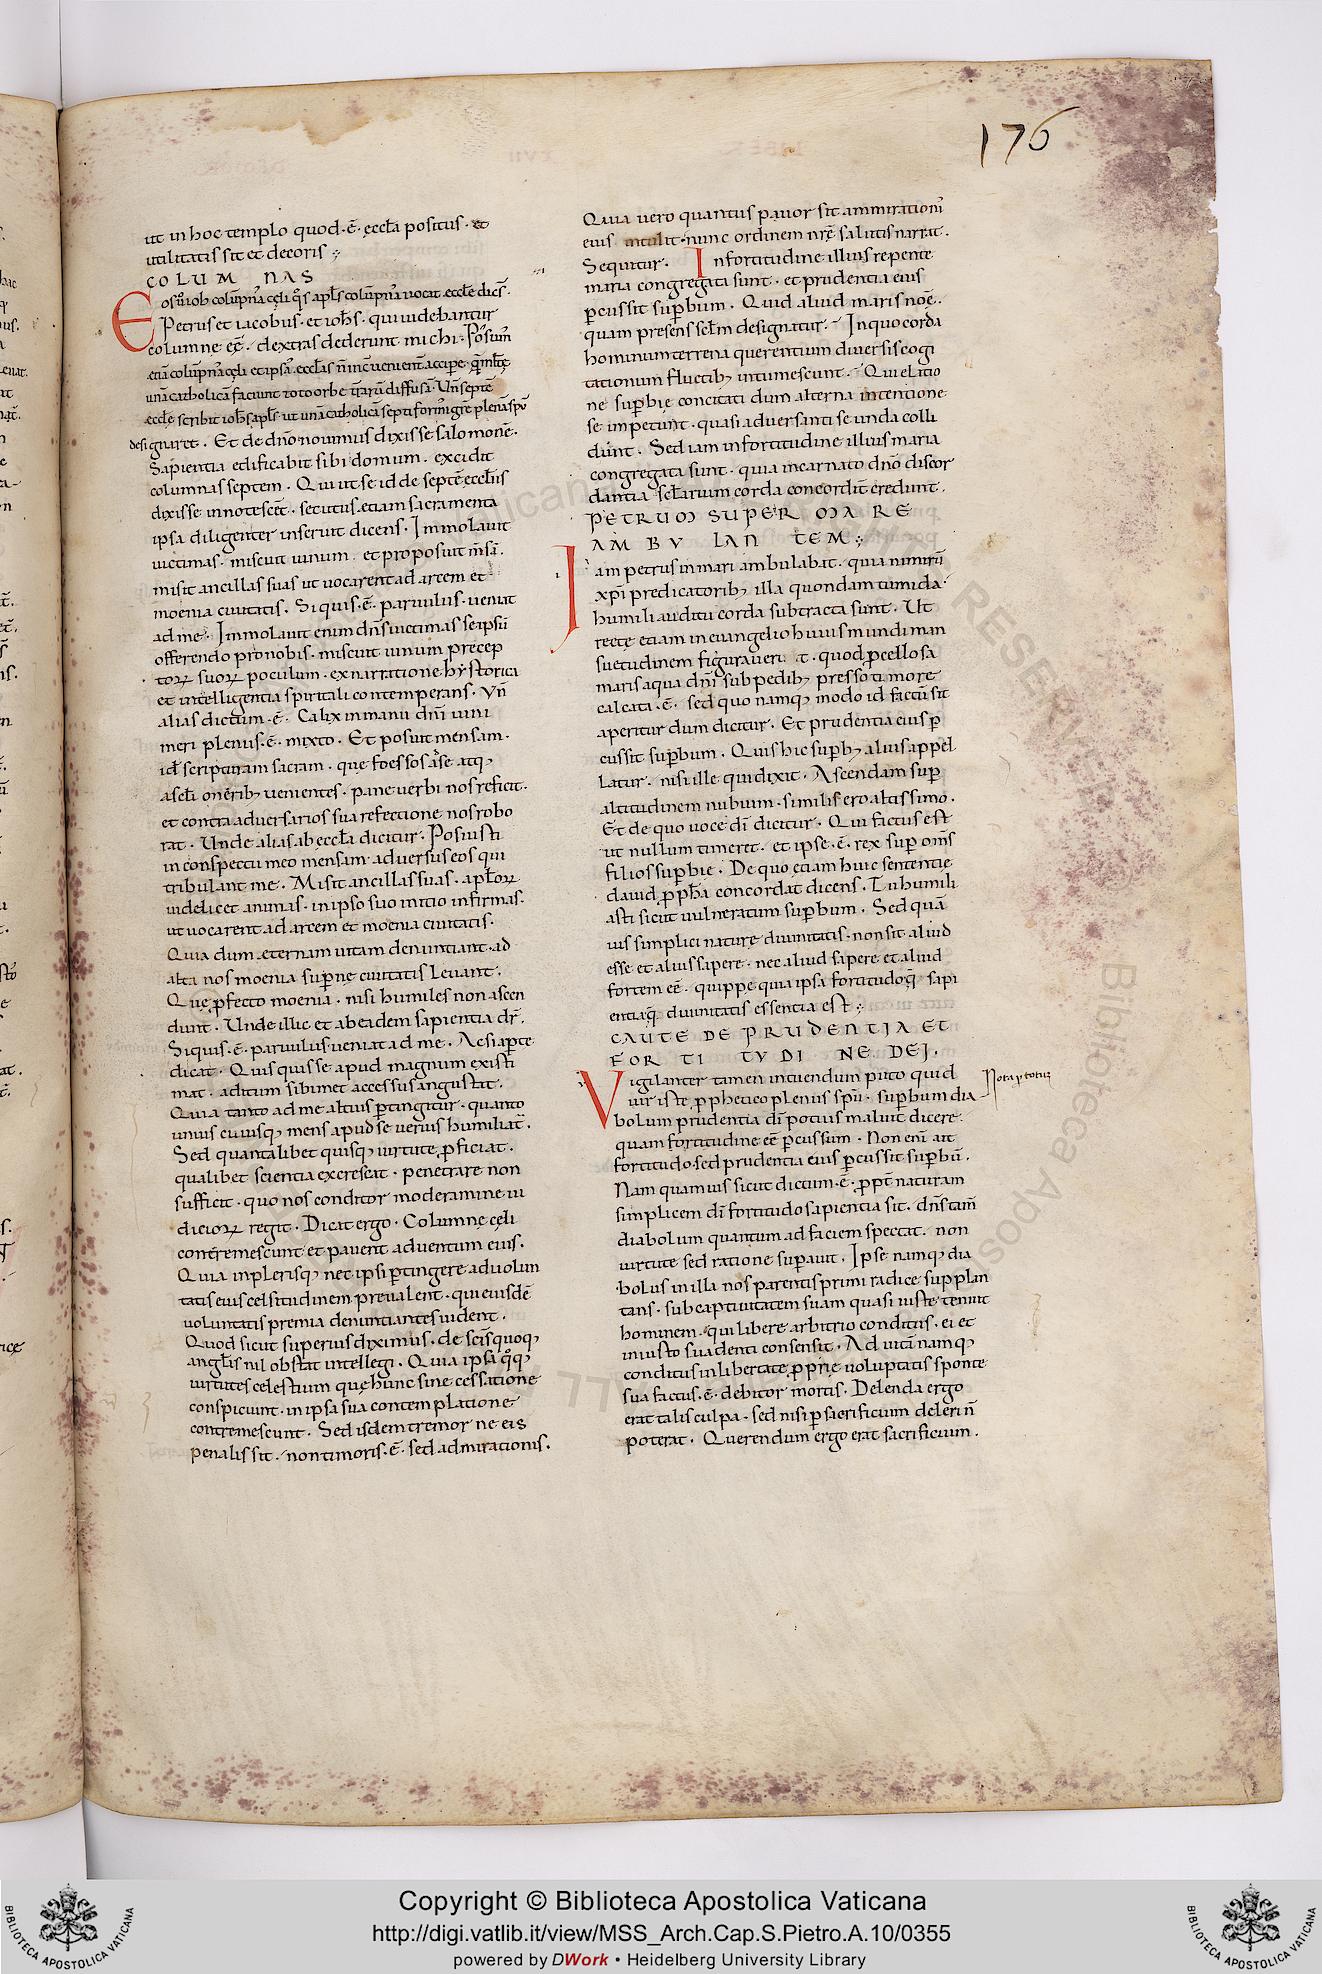 176
ut in hoc templo quod·ē· eccl̄a positus· et
utilitatis sit et decoris
COLUM NAS
Petrus et iacobus· et ioh̄s· qui uidebantur
columne eē· dextras dederunt michi· Possum̄
designaret· Et de dn̄o nouimus dixisse salomonē·
Sapientia edificabit sibi domum· excidit
columnas septem· Qui ut se id de septē eccl̄iis
dixisse innotesceret· secutus etiam sacramenta
ipsa diligenter inseruit dicens· Immolauit
uictimas· miscuit uinum· et proposuit m̄sā·
misit ancillas suas ut uocarent ad arcem et
moenia ciuitatis· Siquis·ē· paruulus· ueniat
ad me· Immolauit enim dn̄s uictimas se ipsū
offerendo pro nobis· miscuit uinum precep
torꝝ suorꝝ poculum· ex narratione hystorica
et intelligentia spiritali contemperans· Vn̄
alias dictum·ē· Calix in manu dn̄i uini
meri plenus·ē· mixto· Et posuit mensam·
id ē scripturam sacram· que fessos a sc̄lo atqꝫ
a sc̄li oneribꝫ uenientes· pane uerbi nos reficit·
et contra aduersarios sua refectione nos robo
rat· Unde alias ab eccl̄a dicitur· Posuisti
in conspectu meo mensam aduersus eos qui
tribulant me· Misit ancillas suas· apl̄orꝝ
uidelicet animas· in ipso suo initio infirmas·
ut uocarent ad arcem et moenia ciuitatis·
Quia dum eternam uitam denuntiant· ad
alta nos moenia supernę ciuitatis leuant·
Quę p̄fecto moenia· nisi humiles non ascen
dunt· Unde illic et ab eadem sapientia dr̄·
Siquis·ē· paruulus· ueniat ad me· Ac si apte
dicat· Quisquis se apud magnum existi
mat· aditum sibimet accessus angustat·
Quia tanto ad me altius ꝑtingitur· quanto
unius cuiusqꝫ mens apud se uerius humiliat̄·
Sed quantalibet quisqꝫ uirtute ꝓficiat·
qualibet scientia excrescat· penetrare non
sufficit· quo nos conditor moderamine iu
diciorꝝ regit· Dicat ergo· Columnę cęli
contremescunt et pauent aduentum eius·
Quia in plerisqꝫ nec ipsi ꝑtingere ad uolun
tatis eius celsitudinem preualent· qui eiusdē
uoluntatis premia denuntiantes uident·
Quod sicut superius diximus· de sc̄is quoqꝫ
angl̄is nil obstat intellegi· Quia ipsa quoqꝫ
uirtutes celestium quę hunc sine cessatione
conspiciunt· in ipsa sua contemplatione
contremescunt· Sed isdem tremor ne eis
penalis sit· non timoris·ē· sed admirationis·
Quia uero quantus pauor sit ammirationi
eius intulit· nunc ordinem nr̄ę salutis narrat·
Sequitur· In fortitudine illius repente
maria congregata sunt· et prudentia eius
percussit suꝑbum· Quid aliud maris noē·
quam presens scl̄m designatur· In quo corda
hominum terrena querentium diuersis cogi
tationum fluctibꝫ intumescunt· Qui elatio
ne suꝑbię concitati dum alterna intentione
se impetunt· quasi aduersanti se unda colli
dunt· Sed iam in fortitudine illius maria
congregata sunt· quia incarnato dn̄o discor
dantia scl̄arium corda concordit̄ credunt·
PETRUM SUPER MARE
AMBULANTEM
Iam petrus in mari ambulabat· quia nimirū
xp̄i predicatoribꝫ illa quondam tumida
humili auditu corda subtracta sunt· Ut
recte etiam in euangelio huius mundi man
suetudinem figurauerit· quod procellosa
maris aqua dn̄i sub pedibꝫ presso timore
calcata·ē· sed quo namqꝫ modo id factū sit
aperitur dum dicitur· Et prudentia eius ꝑ
cussit suꝑbum· Quis hic suꝑbꝫ alius appel
latur· nisi ille qui dixit· Ascendam suꝑ
altitudinem nubium· similis ero altissimo·
Et de quo uoce dī dicitur· Qui factus est
ut nullum timeret· et ipse·ē· rex suꝑ om̄s
filios suꝑbię· De quo etiam huic sententię
dauid ꝓph̄a concordat dicens· Tu humili
asti sicut uulneratum suꝑbum· Sed quā
uis simplici naturę diuinitatis· non sit aliud
esse et alius sapere· nec aliud sapere et aliud
fortem eē· quippe quia ipsa fortitudo q̄ sapi
entia q̄ diuinitatis essentia est
CAUTE DE PRUDENTIA ET
FORTITUDINE DEI·
Vigilanter tamen intuendum puto quid
uir iste ꝓphetico plenus spū· suꝑbum dia
bolum prudentia dī potius maluit dicere
quam fortitudine eē ꝑcussum· Non eni ait
fortitudo· sed prudentia eius ꝑcussit suꝑbū·
Nam quamuis sicut dictum·ē· ꝓpt̄ naturam
simplicem dī fortitudo sapientia sit· dn̄s tam̄
diabolum quantum ad faciem spectat· non
uirtute sed ratione suꝑauit· Ipse namqꝫ dia
bolus in illa nos parentis primi radice supplan
tans· sub captiuitatem suam quasi iuste tenuit
hominem· qui libere arbitrio conditus· ei et
iniusto suadenti consensit· Ad uitā namqꝫ
conditus in libertate ꝓprię uoluptatis sponte
sua factus·ē· debitor mortis· Delenda ergo
erat talis culpa· sed nisi ꝑ sacrificium deleri n̄
poterat· Querendum ergo erat sacrificium·
Copyright © Biblioteca Apostolica Vaticana
http://digi.vatlib.it/view/MSS_Arch.Cap.S.Pietro.A.10/0355
powered by DWork • Heidelberg University Library